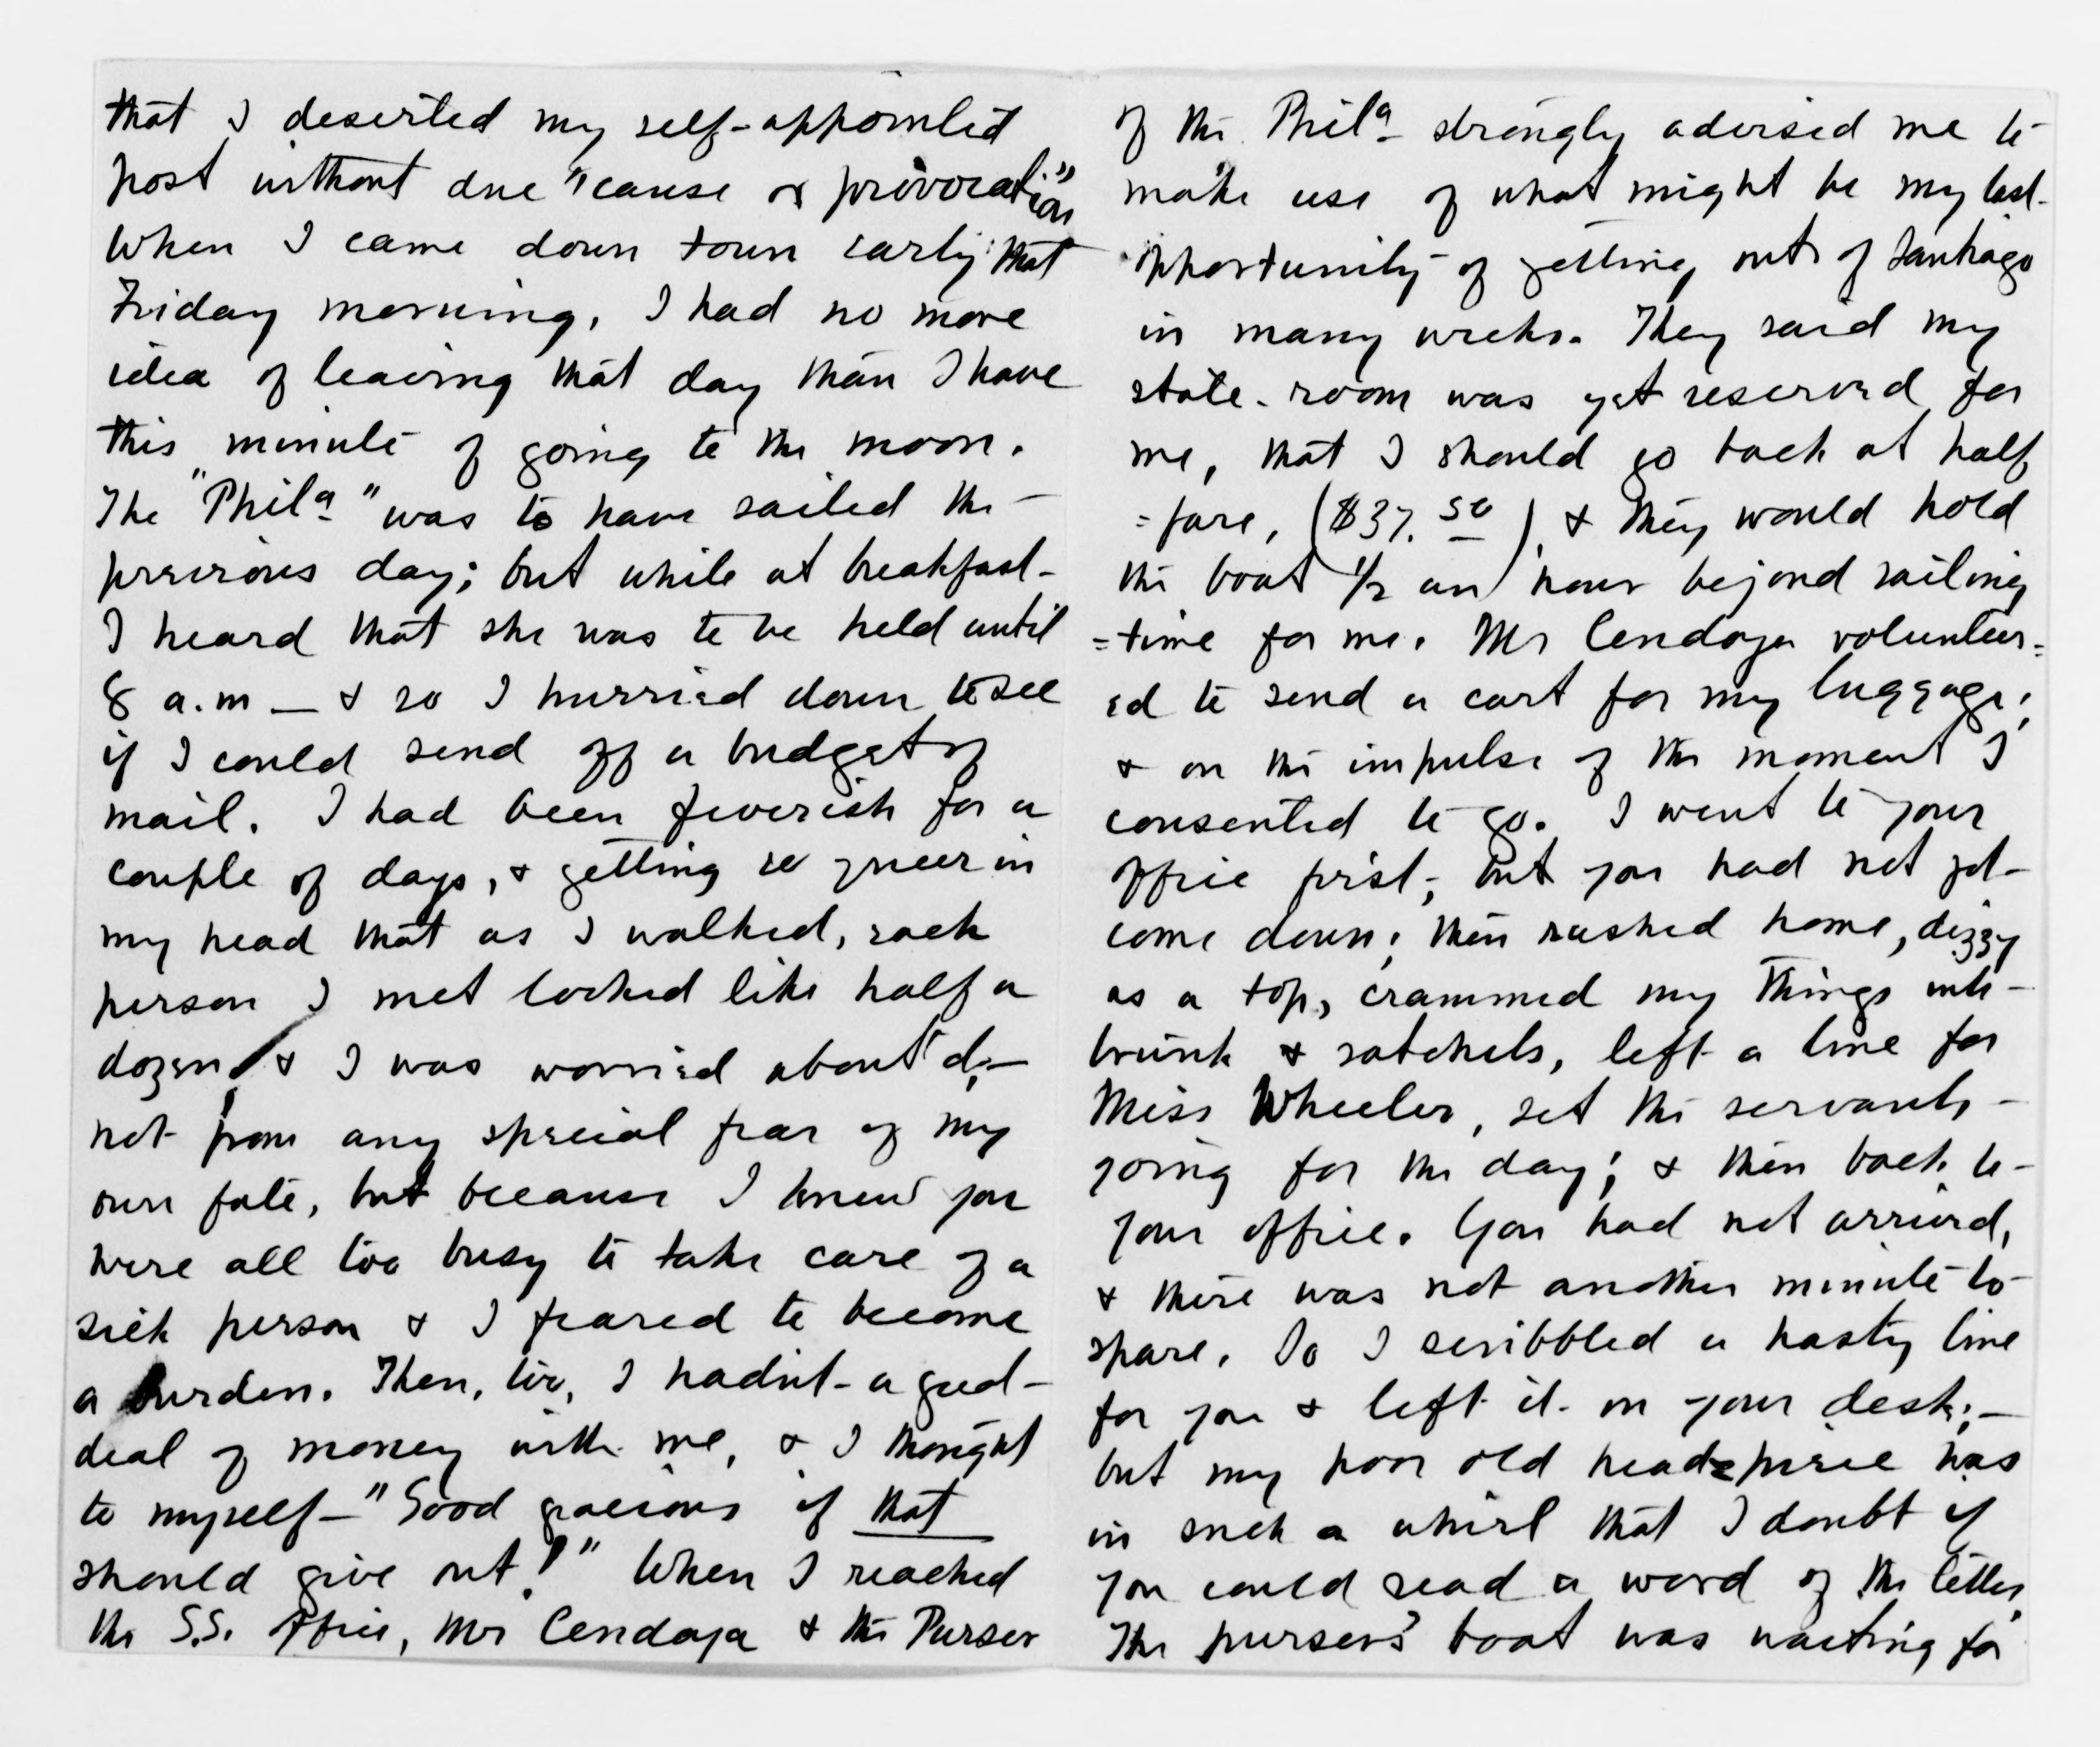 that I deserted my self-appointed
post without due "cause or provocation"
When I came down town early that
Friday morning, I had no more
idea of leaving that day than I have
this minute of going to the moon.
The "Phila" was to have sailed the
previous day; but while at breakfast
I heard that she was to be held until
8 a.m — & so I hurried down to see
if I could send off a budget of
mail. I had been feverish for a
couple of days, & getting so queer in
my head that as I walked, each
person I met looked like half a
dozen, & I was worried about it,—
not from any special fear of my
own fate, but because I knew you
were all too busy to take care of a
sick person & I feared to become
a burden. Then, too, I hadn't a good
deal of money with me, & I thought
to myself—"Good gracious if that
should give out!" When I reached
the S.S. office, Mr Cendoya & the Purser
of the Phila strongly advised me to
make use of what might be my last
opportunity of getting out of Santiago
in many weeks. They said my
state-room was yet reserved for
me, that I should go back at half
=fare, ($37.50), & they would hold
the boat 1/2 an hour beyond sailing
=time for me. Mr Cendoya volunteer=
ed to send a cart for my luggage;
& on the impulse of the moment I
consented to go. I went to your
office first, but you had not yet
come down; then rushed home, dizzy
as a top, crammed my things into
trunk & satchels, left a line for
Miss Wheeler, set the servants
going for the day; & then back to
your office. You had not arrived,
& there was not another minute to
spare. So I scribbled a hasty line
for you & left it on your desk;—
but my poor old head=piece was
in such a whirl that I doubt if
you could read a word of the letter.
The purser's boat was waiting for